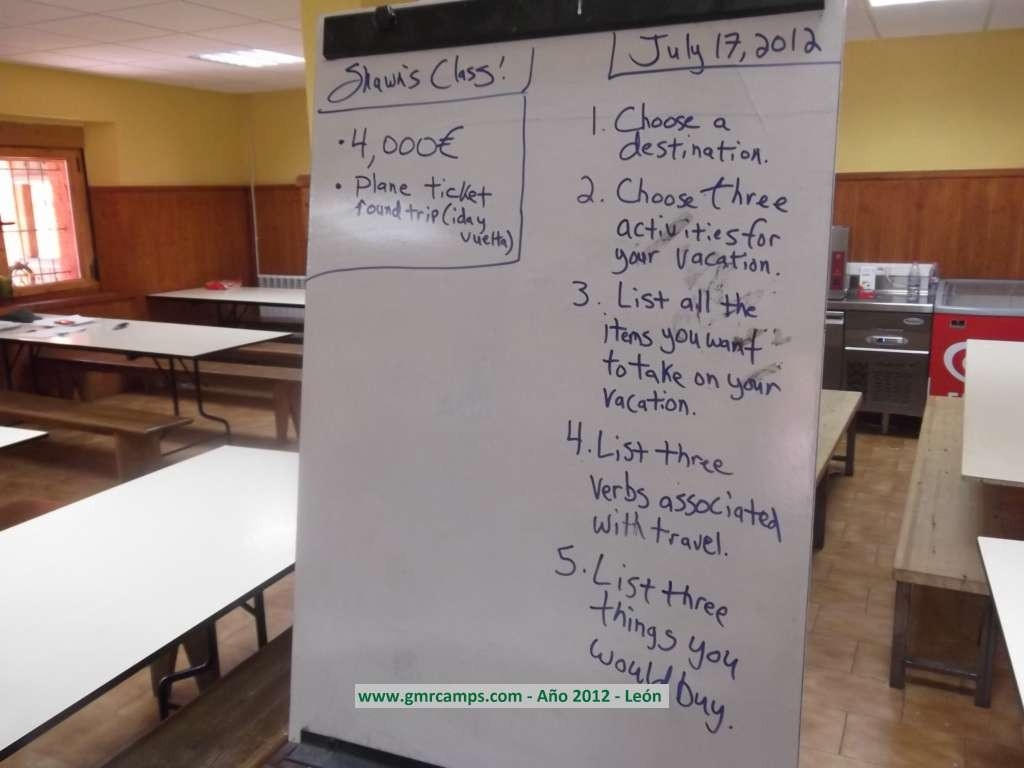 Shawn's Class!
• 4,000€
• Plane ticket
round trip (ida y
vuelta)
July 17, 2012
1. Choose a
destination.
2. Choose three
activities for
your vacation.
3. List all the
items you want
to take on your
vacation.
4. List three
verbs associated
with travel.
5. List three
things you
would buy.
www.gmrcamps.com - Año 2012 - León